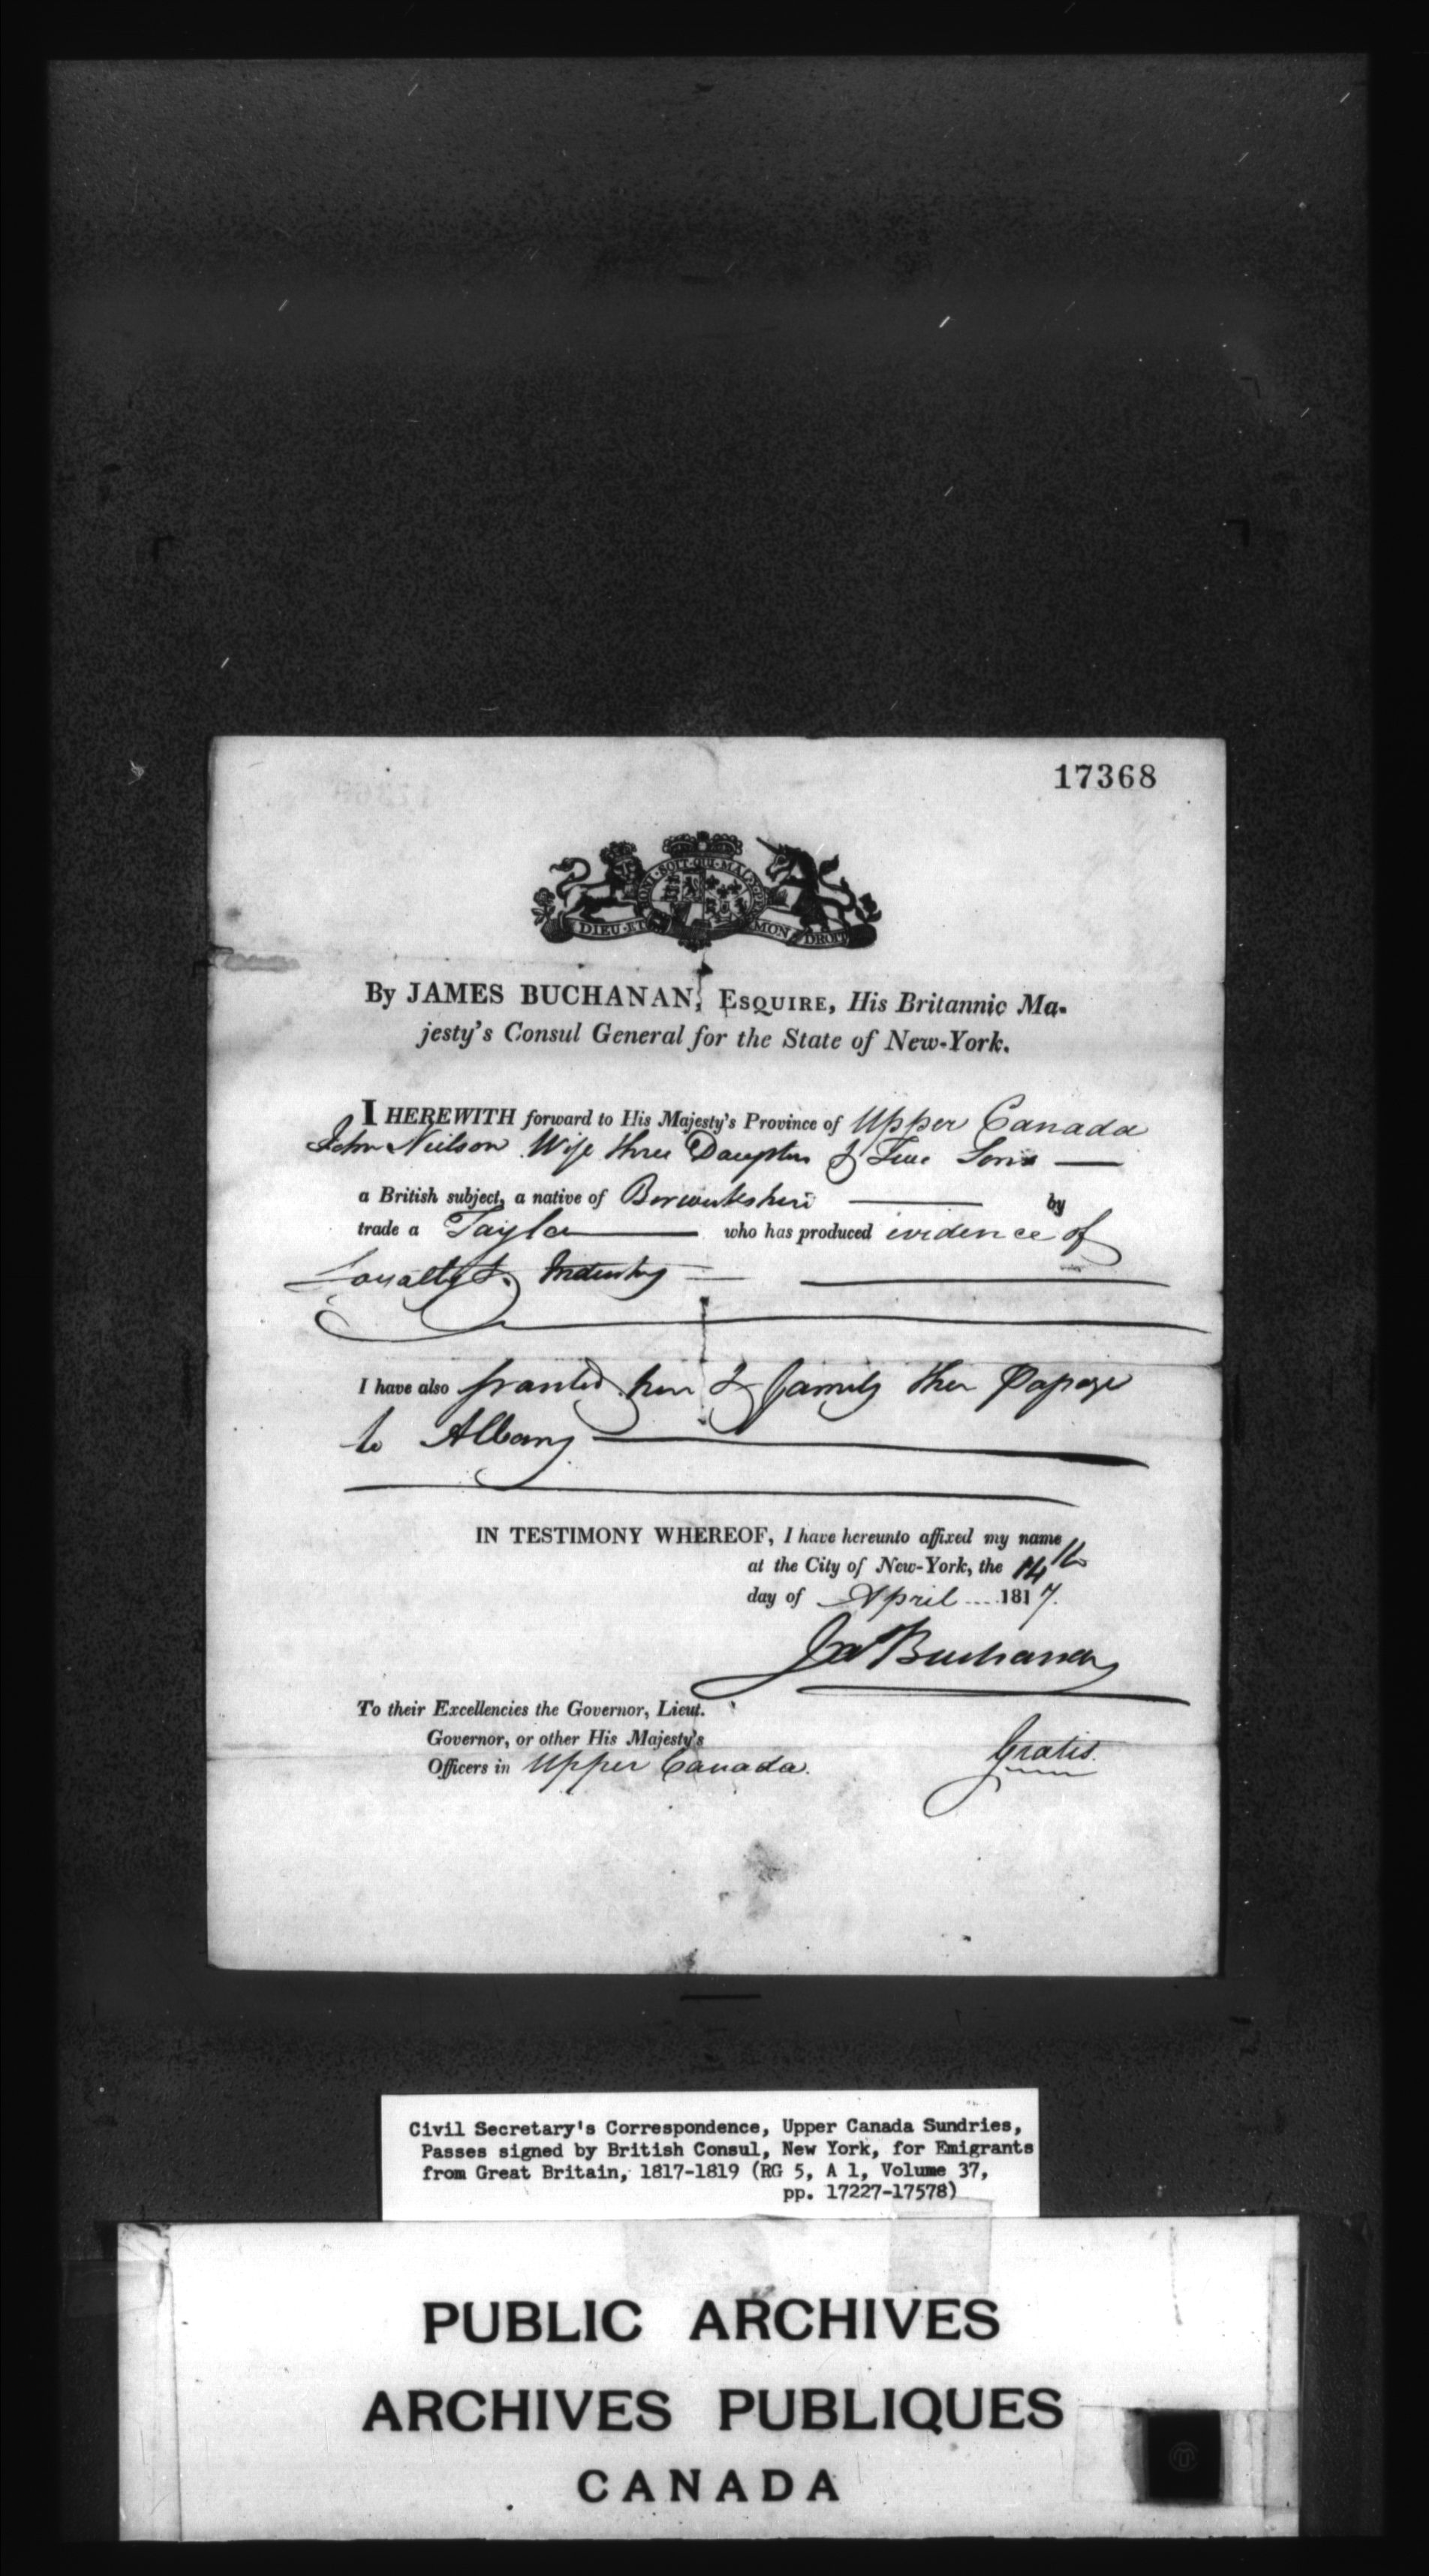 17368
HONI·SOIT·QUI·MAL·Y·
DIEU·ET MON DROIT
By JAMES BUCHANAN, ESQUIRE, His Britannic Ma-
jesty's Consul General for the State of New-York.
I HEREWITH forward to His Majesty's Province of Upper Canada
John Neilson Wife three Daughters & Sons
a British subject, a native of Berwickshire by
trade a Taylor who has produced evidence of
Loyalty & Industry
I have also granted him & family their Passage
to Albany
IN TESTIMONY WHEREOF, I have hereunto affixed my name
at the City of New-York, the 14th
day of April 1817.
Jas Buchanan
To their Excellencies the Governor, Lieut.
Governor, or other His Majesty's
Officers in Upper Canada.
Gratis.
Civil Secretary's Correspondence, Upper Canada Sundries,
Passes signed by British Consul, New York, for Emigrants
from Great Britain, 1817-1819 (RG 5, A 1, Volume 37,
pp. 17227-17578)
PUBLIC ARCHIVES
ARCHIVES PUBLIQUES
CANADA